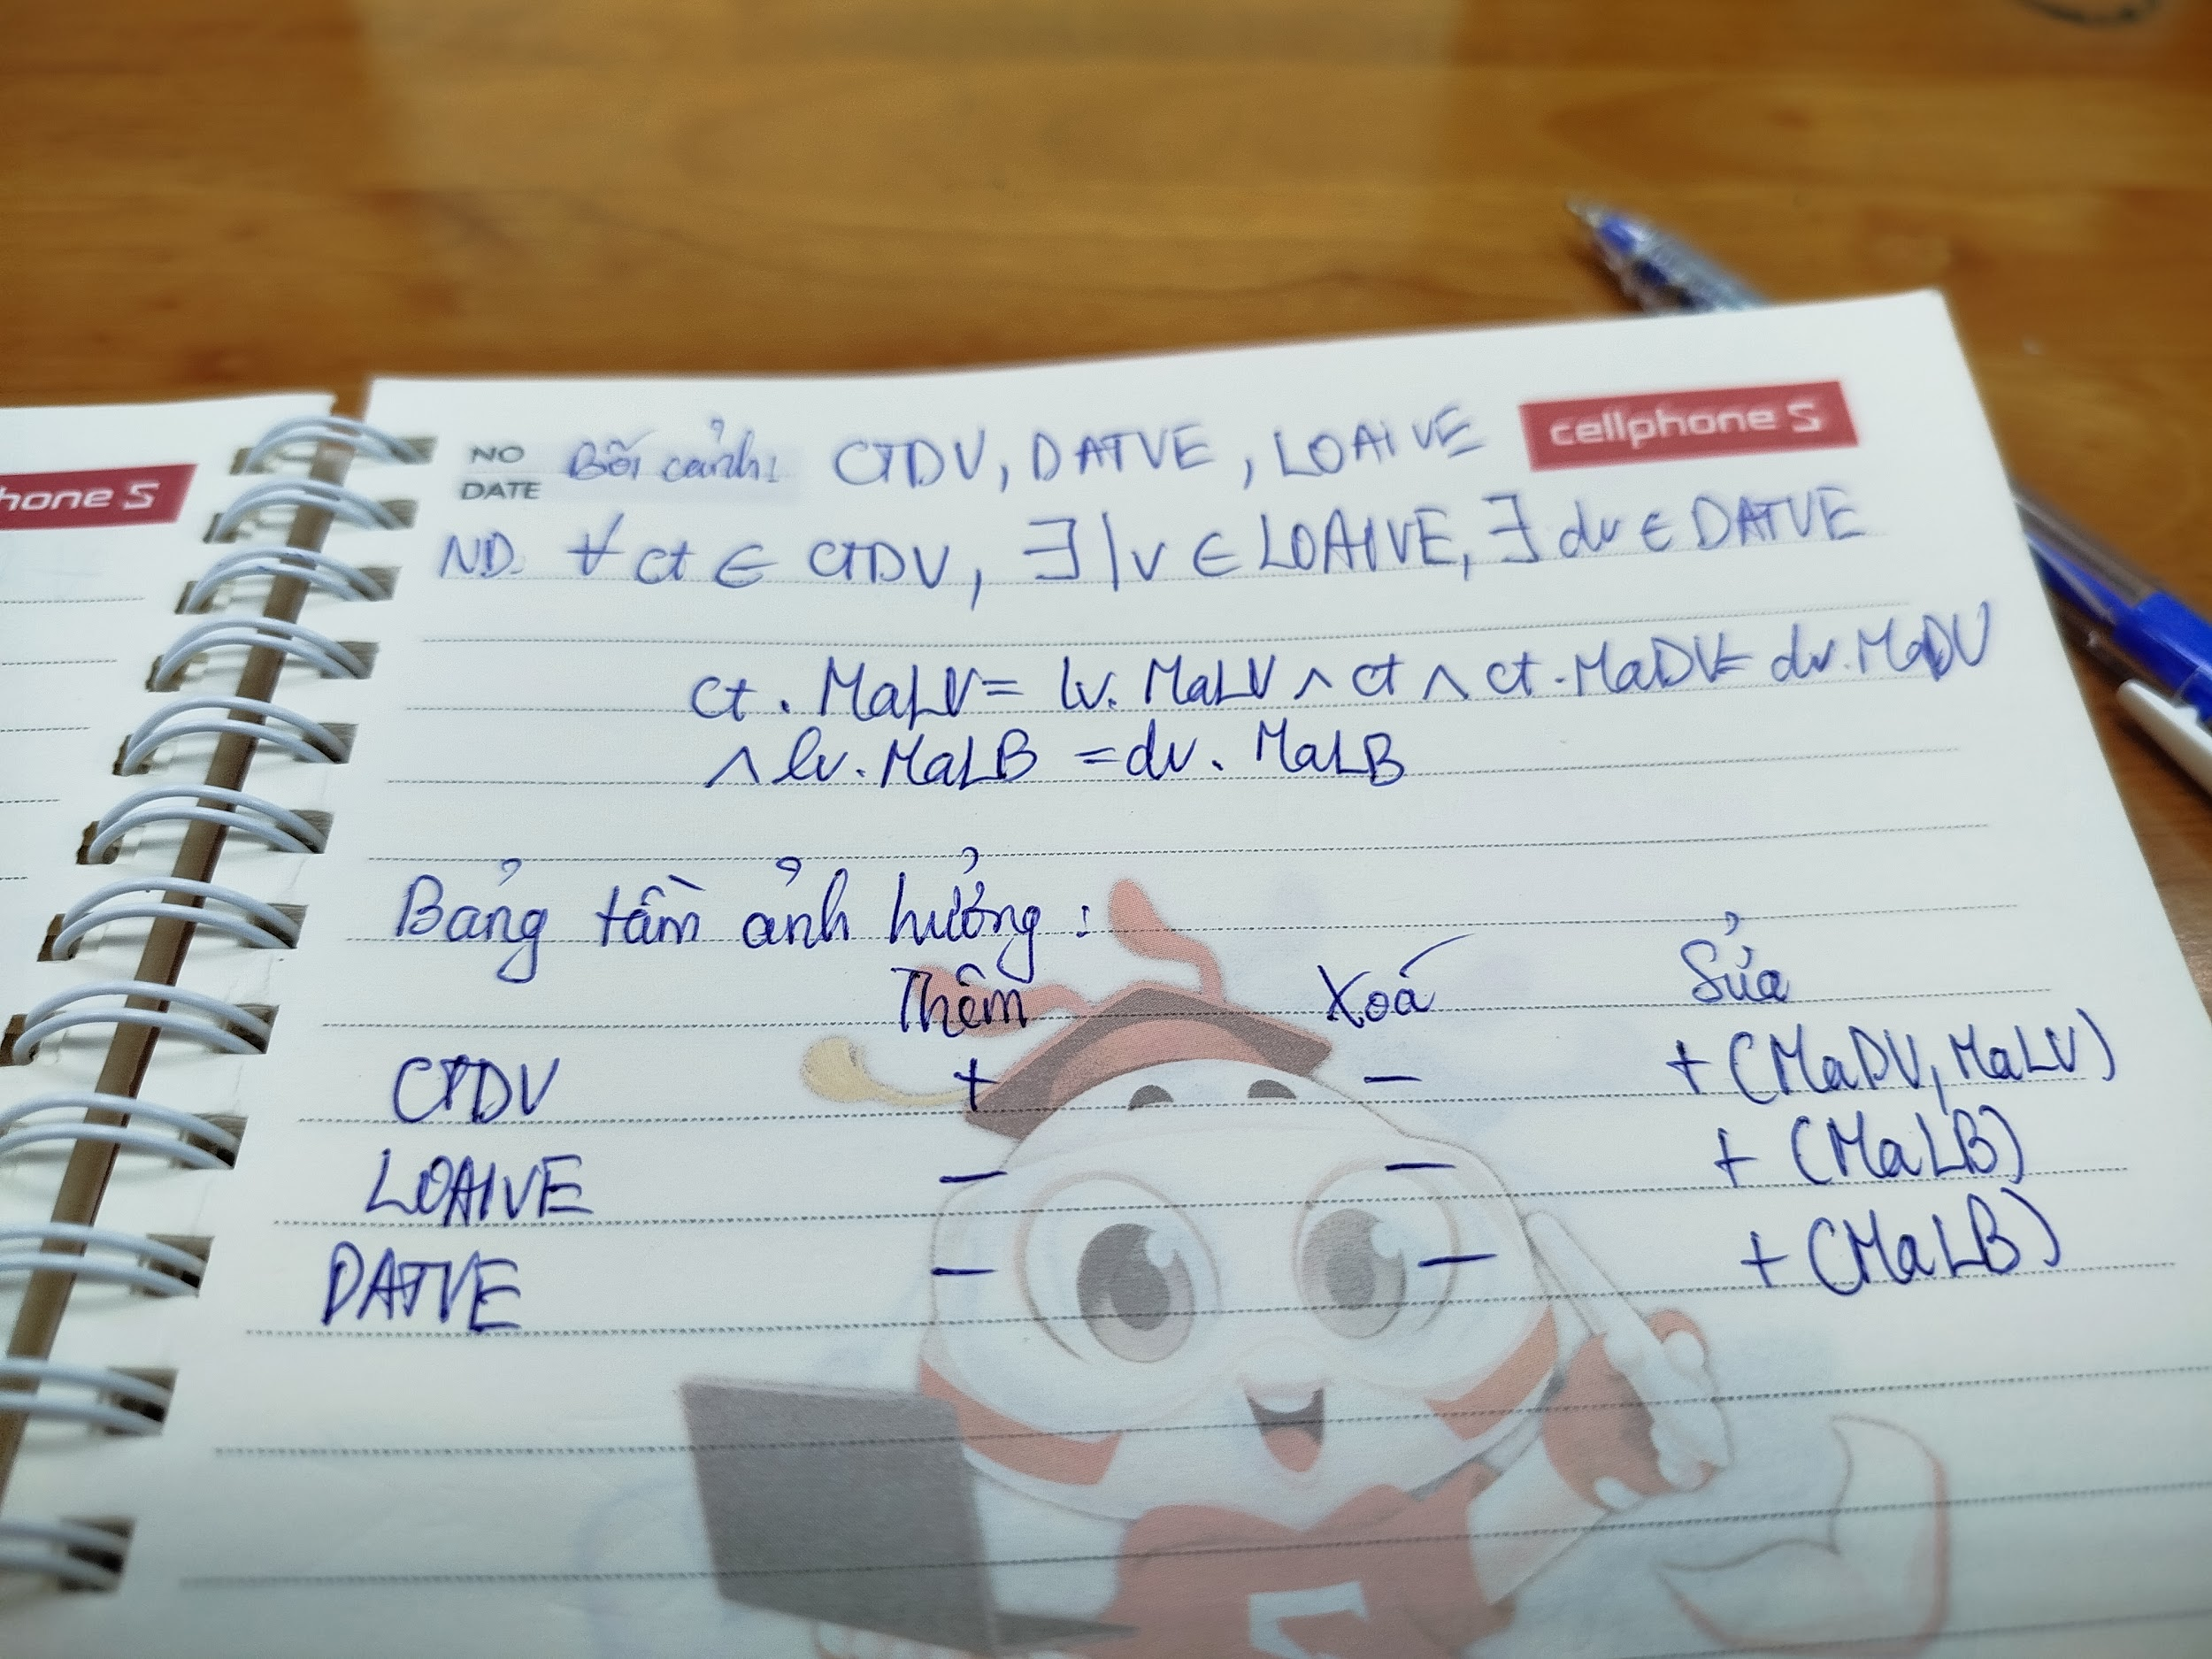 hone S
NO
DATE
Bối cảnh: CTDV, DATVE, LOAIVE
cellphone S
ND. ∀ ct ∈ CTDV, ∃ lv ∈ LOAIVE, ∃ dv ∈ DATVE
ct . MaLV = lv. MaLV ∧ ct ∧ ct . MaDV = dv. MaDV
∧ lv. MaLB = dv. MaLB
Bảng tầm ảnh hưởng :
Thêm Xoá Sửa
CTDV + − + (MaDV, MaLV)
LOAIVE − − + (MaLB)
DATVE − − + (MaLB)